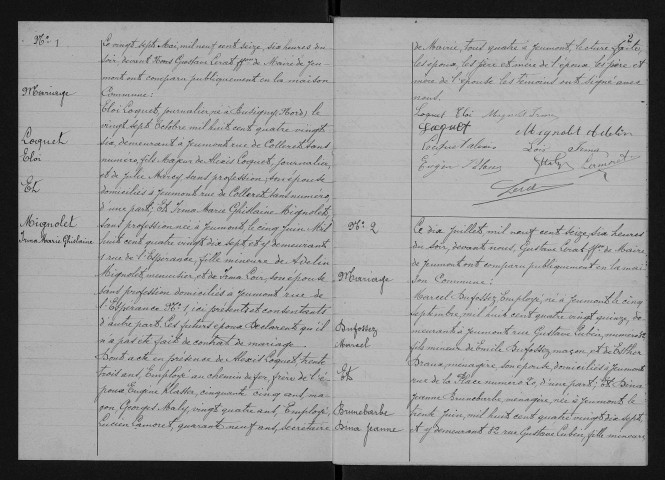 N° 1
Mariage
Loquet
Eloi
Et
Mignolet
Irma Marie Ghislaine
Le vingt sept Mai, mil neuf cent seize, six heures du
soir, devant Nous Gustave Lerat ffons de Maire de Jeu-
mont ont comparu publiquement en la maison
Commune:
Eloi Loquet, journalier, né à (Nord) le
vingt sept Octobre mil huit cent quatre vingt
six, demeurant à Jeumont rue de Colleret sans
numéro, fils Majeur de Alexis Loquet, journalier,
et de Julie Mercy sans profession, son épouse
domiciliés à Jeumont rue de Colleret sans numéro,
d'une part; Et Irma Marie Ghislaine Mignolet
sans profession née à Jeumont le cinq Juin Mil
huit cent quatre vingt dix sept et y demeurant
rue de l'Espérance, fille mineure de Adelin
Mignolet menuisier, et de Irma Loir, son épouse
sans profession domiciliés à Jeumont rue de
l'Espérance N° 1, ici présents et consentants
d'autre part. Ces futurs époux déclarent qu'il
n'a pas été fait de contrat de mariage.
Dont acte en présence de Alexis Loquet, trente
trois ans, Employé au chemin de fer, frère de l'é-
poux, Eugène cinquante cinq ans, ma-
çon, Georges Maly, vingt quatre ans, Employé,
Lucien Lamoret, quarante neuf ans, secrétaire
2
de Mairie, tous quatre à Jeumont, lecture faite,
les époux, les père et mère de l'époux, les père et
mère de l'épouse les témoins ont signé avec
nous.
Loquet Eloi Mignolet Irma
Loquet Mignolet Adelin
Loquet Alexis Loir Irma
Eugène Maly Lamoret
Lerat
N° 2
Mariage
Bufossez
Marcel
Et
Brunebarbe
Bina Jeanne
Ce dix Juillet, mil neuf cent seize, six heures
du soir, devant nous, Gustave Lerat ffons de Maire
de Jeumont ont comparu publiquement en la mai-
son Commune:
Marcel Bufossez, Employé, né à Jeumont le cinq
septembre, mil huit cent quatre vingt quinze, de-
meurant à Jeumont rue Gustave Cubin, numéro 82
fils mineur de Emile Bufossez maçon, et de Esther
ménagère, son épouse domiciliés à Jeumont
rue de la Place numéro 20, d'une part; Et Bina
Jeanne Brunebarbe ménagère, née à Jeumont le
Juin, mil huit cent quatre vingt dix sept
et y demeurant 82 rue Gustave Cubin, fille mineure